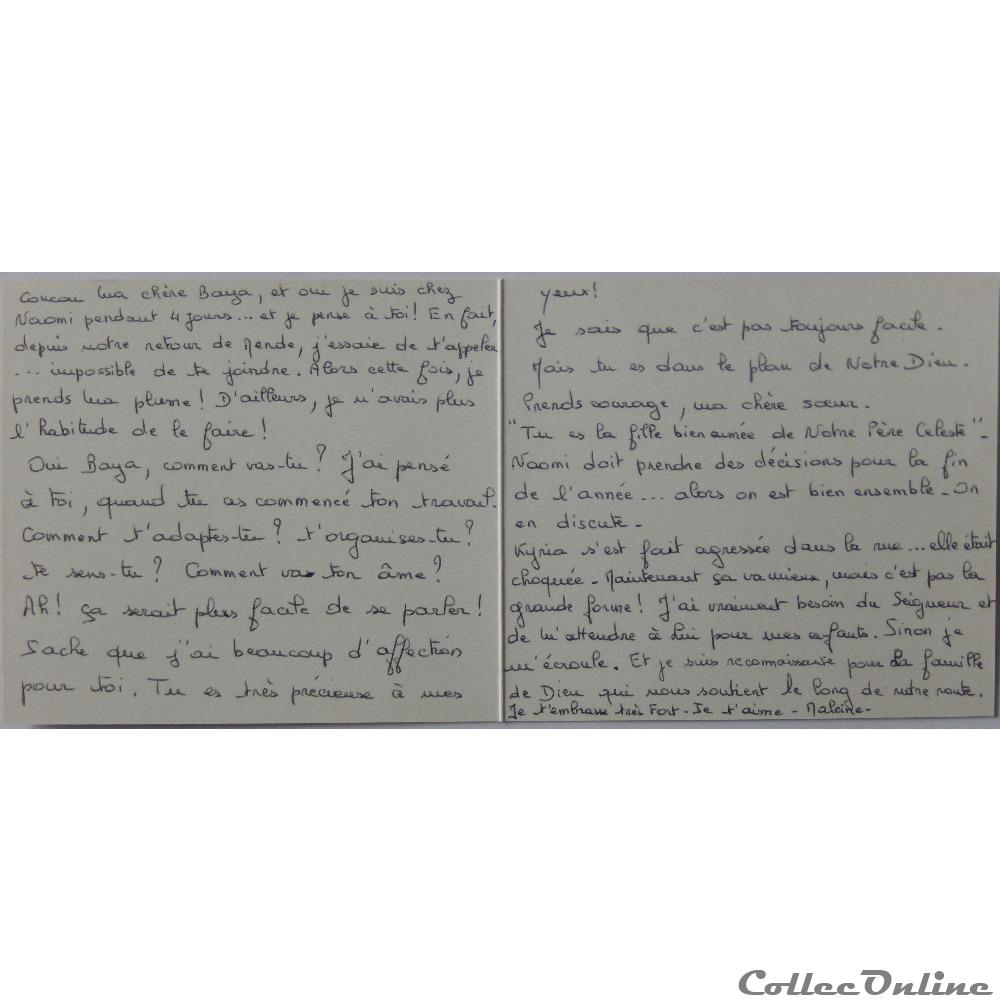 Coucou ma chère Baya, et oui je suis chez
Naomi pendant 4 jours... et je pense à toi! En fait,
depuis notre retour de Mende, j'essaie de t'appeler
... impossible de te joindre. Alors cette fois, je
prends ma plume! D'ailleurs, je n'avais plus
l'habitude de le faire!
Oui Baya, comment vas-tu? J'ai pensé
à toi, quand tu as commencé ton travail.
Comment t'adaptes-tu? t'organises-tu?
te sens-tu? Comment va ton âme?
Ah! ça serait plus facile de se parler!
Sache que j'ai beaucoup d'affection
pour toi. Tu es très précieuse à mes
yeux!
Je sais que c'est pas toujours facile.
Mais tu es dans le plan de Notre Dieu.
Prends courage, ma chère sœur.
"Tu es la fille bien aimée de Notre Père Celeste"-
Naomi doit prendre des décisions pour la fin
de l'année... alors on est bien ensemble - On
en discute -
Kyria s'est fait agressée dans la rue... elle était
choquée - Maintenant ça va mieux, mais c'est pas la
grande forme! J'ai vraiment besoin du Seigneur et
de m'attendre à Lui pour mes enfants. Sinon je
m'écroule. Et je suis reconnaissante pour la famille
de Dieu qui nous soutient le long de notre route.
Je t'embrasse très Fort - Je t'aime -
CollecOnline